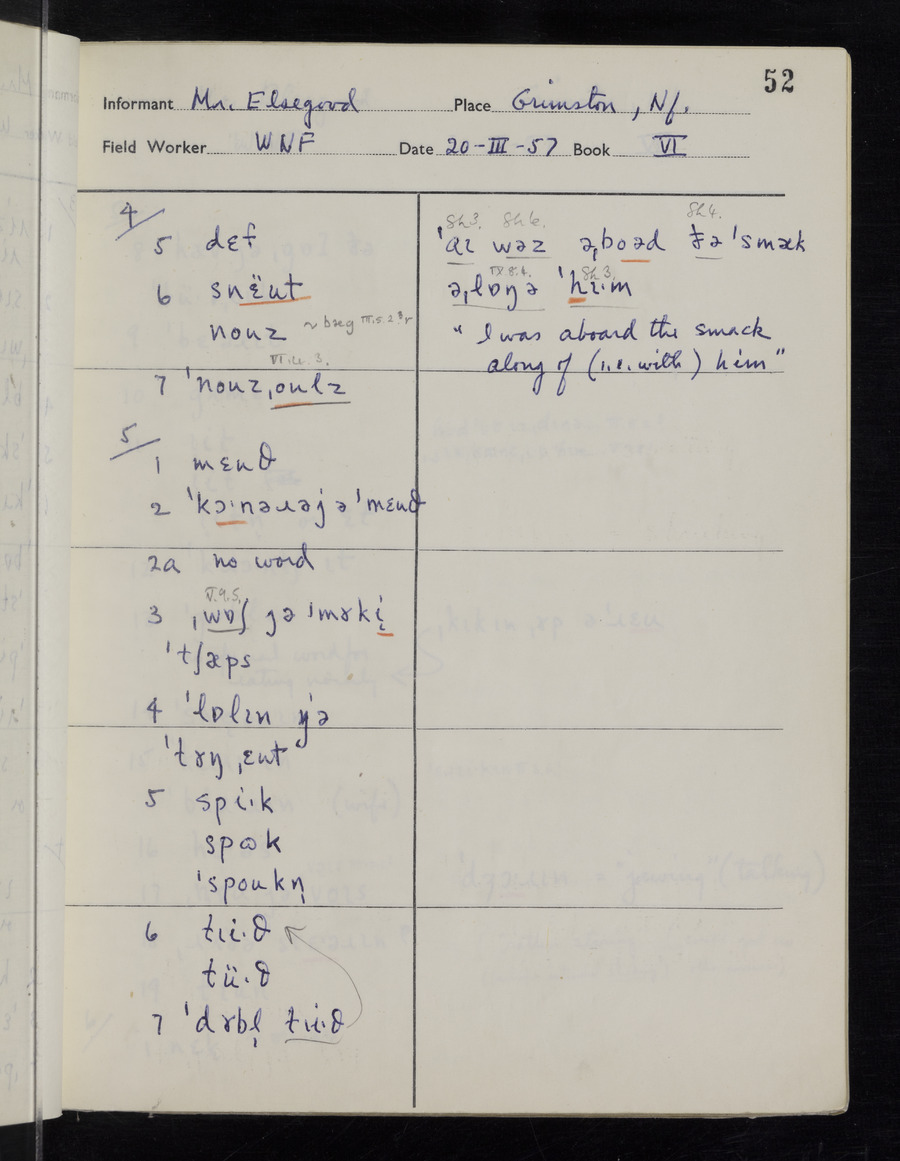 52
Informant Mr. Elsegood Place Grimston, Nf.
Field Worker WNF Date 20-III-57 Book VI
4/
5 dɛf
6 snɛ̈ʊt
nouz ~ bæg III.5.2
VI.14.3.
7 ˈnouzˌoulz
5/
1 mɛuθ
2 ˈkɔ·nəɹəj ə ˈmɛuθ
2a no word
V.9.5.
3 ˌwɒʃ jə ˈmɤki
ˈtʃæps
4 ˈlɒlɪn jə
ˈtɤŋˌɛut
5 spi·k
spɷk
ˈspoukn̩
6 tɪi·θ
tü·θ
7 ˈdɤbl̩ tɪi·θ
Sh3. Sh6. Sh4.
ˈaɪ wəz əˌboəd ðə ˈsmæk
IX.8.4. Sh3.
əˌlɒŋ ə ˈhɪ·m
"I was aboard the smack
along of (i.e. with) him"